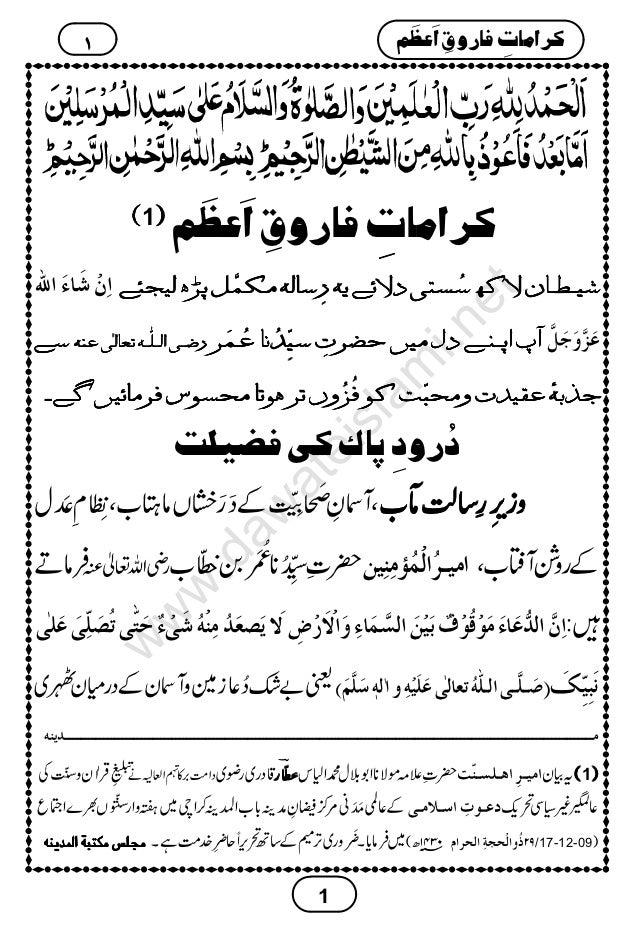 کراماتِ فاروقِ اَعظَم
۱
اَلْحَمْدُ لِلّٰهِ رَبِّ الْعٰلَمِيْنَ وَالصَّلٰوةُ وَالسَّلَامُ عَلٰى سَيِّدِ الْمُرْسَلِيْنَ
اَمَّا بَعْدُ فَاَعُوْذُ بِاللّٰهِ مِنَ الشَّيْطٰنِ الرَّجِيْمِ ؕ بِسْمِ اللّٰهِ الرَّحْمٰنِ الرَّحِيْمِ ؕ
کراماتِ فاروقِ اَعظَم (1)
شیطان لاکھ سُستی دلائے یہ رِسالہ مکمَّل پڑھ لیجئے اِنْ شَآءَ اللہ
عَزَّوَجَلَّ آپ اپنے دل میں حضرتِ سیِّدُنا عُمَر رضی اللہ تعالیٰ عنہ سے
جذبۂ عقیدت ومحبّت کو فُزُوں تر ہوتا محسوس فرمائیں گے۔
دُرودِ پاك كى فضيلت
وزیرِ رِسالت مآب، آسمانِ صَحابِیّت کے دَرَخشاں ماہتاب، نِظامِ عَدل
کے روشن آفتاب، امیرُ الْمُؤمِنِین حضرتِ سیِّدُنا عُمَر بن خطّاب رضی اللہ تعالیٰ عنہ فرماتے
ہیں: اِنَّ الدُّعَاءَ مَوْقُوْفٌ بَيْنَ السَّمَاءِ وَالْاَرْضِ لَا يَصْعَدُ مِنْهُ شَىْءٌ حَتّٰى تُصَلِّىَ عَلٰى
نَبِيِّكَ (صَلَّى اللہُ تعالٰى عَلَيْهِ و اٰلهٖ سَلَّمَ) یعنی بے شک دُعا زمین وآسمان کے درمیان ٹھہری
مـــدینه
(1) یہ بیان امیرِ اھلسنّت حضرتِ علّامہ مولانا ابوبلال محمد الیاس عطّار قادری رضوی دامت برکاتہم العالیہ نے تبلیغِ قراٰن وسنّت کی
عالمگیر غیر سیاسی تحریک دعوتِ اسلامی کے عالمی مَدَنی مرکز فیضانِ مدینہ باب المدینہ کراچی میں ہفتہ وار سنّتوں بھرے اجتماع
(۲۹ ذُوالْحِجةِ الحرام ۱۴۳۰ھ/17-12-09) میں فرمایا۔ ضَروری ترمیم کے ساتھ تحریراً حاضرِ خدمت ہے۔ مجلسِ مکتبۃ المدینہ
1
www.dawateislami.net